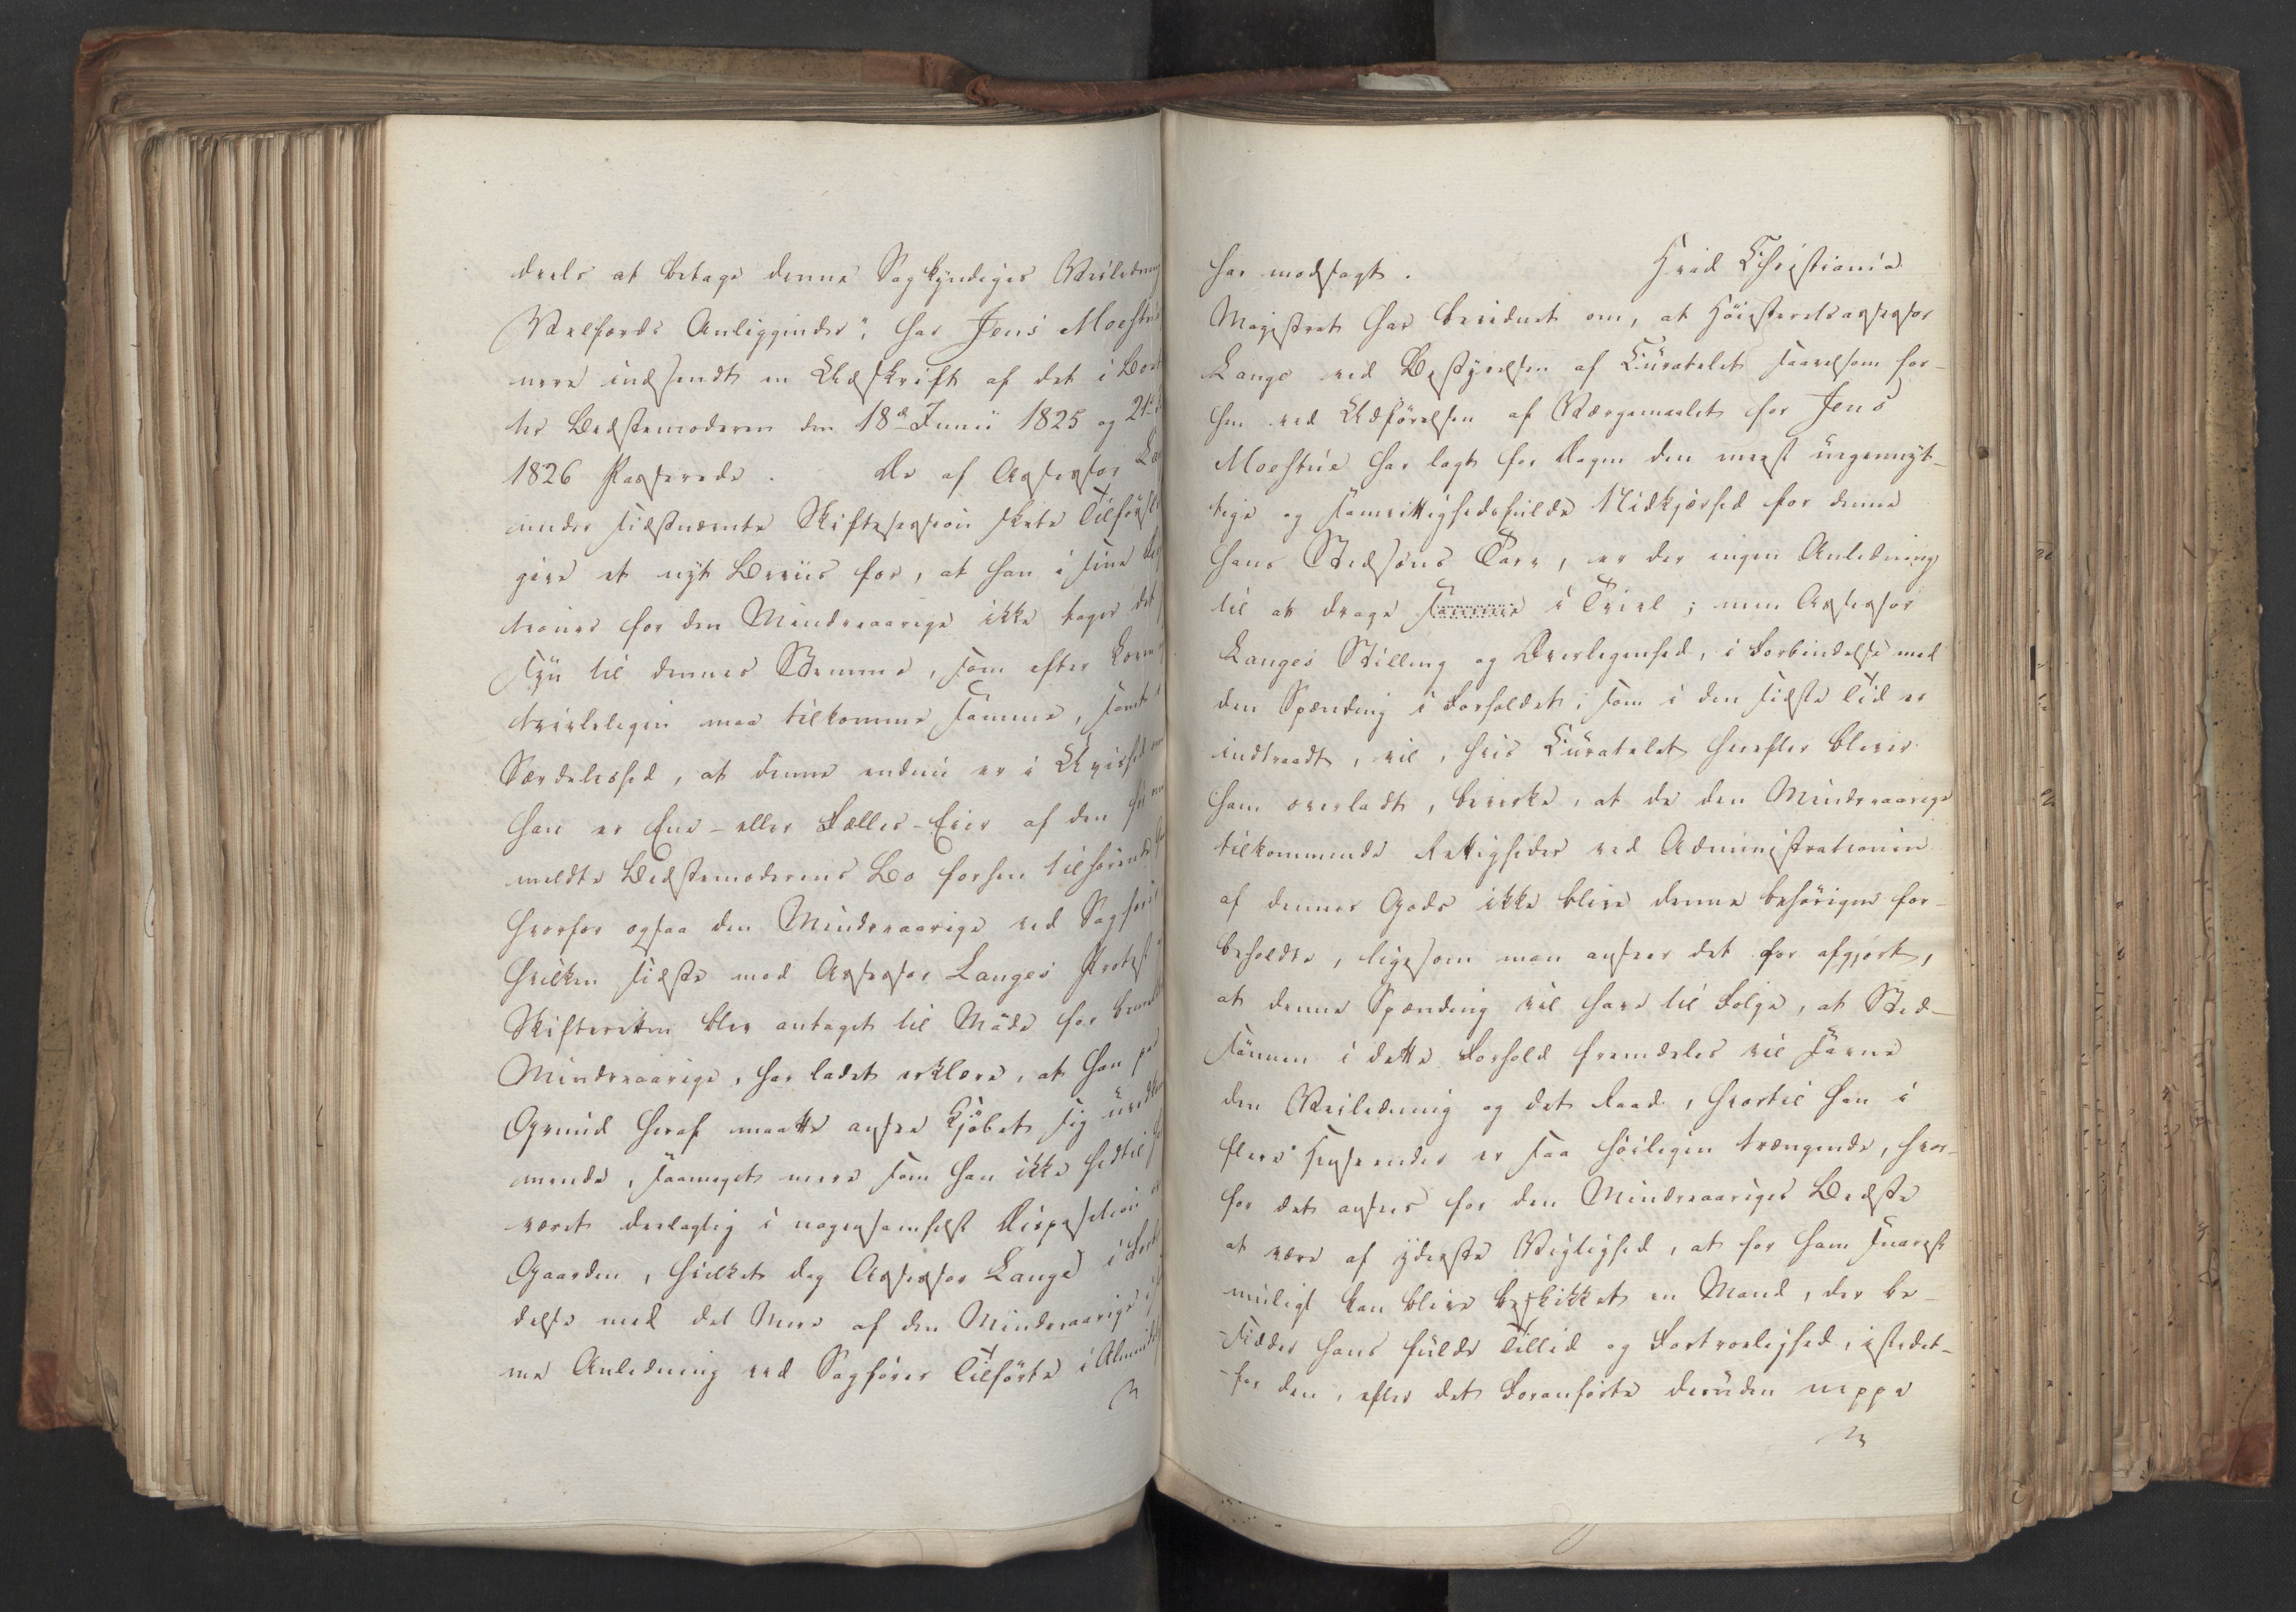 deels at betage denne Sagkyndiges Veiledning
Velfærds Anliggender", har Jens Moestue
nere indsendt en Udskrift af det i Boet
ter Bedstemoderen den 18de Junii 1825 og 21de
1826 Passerede. De af Assessor La
under sidstnævnte Skiftesession skete Tilførsler
give et nyt Beviis for, at han i sine
tioner for den Mindreaarige ikke tager det
syn til dennes Stemme, som efter Loven
tvivlsligen maa tilkomme samme, samt i
Særdeleshed, at denne endnu er i Uvished om
han er Ene- eller Fælles-Eier af den
meldte Bedstemoderens Bo forhen tilhørende
hvorfor ogsaa den Mindreaarige ved Sagfører
hvilken sidste mod Assessor Langes Protest
Skifteretten blev antaget til Møde for bemeldte
Mindreaarige, har ladet erklære, at han paa
Grund heraf maatte ansee Kjøbet sig uvedkom
mende, saameget mere som han ikke hidtil
været deelagtig i nogensomhelst Disposition
Gaarden, hvilket dog Assessor Lange i Forbin
delse med det Mere af den Mindreaarige
me Anledning ved Sagfører Tilførte i Almindel
har modsagt. Hvad Christiania
Magistrat har bevidnet om, at Høiesteretsassessor
Lange ved Bestyrelsen af Curatelet saavelsom for-
hen ved Udførelsen af Værgemaalet for Jens
Moestue har lagt for Dagen den meest uegennyt-
tige og samvittighedsfulde Nidkjærhed for denne
hans Stedsøns Tarv, er der ingen Anledning
til at drage samme i Tvivl; men Assessor
Langes Stilling og Overlegenhed, i Forbindelse med
den Spænding i Forholdet, som i den sidste Tid er
indtraadt, vil, hvis Curatelet herefter bliver
ham overladt, bevirke, at de den Mindreaarige
tilkommende Rettigheder ved Administrationen
af dennes Gods ikke blive denne behørigen for-
beholdte, ligesom man anseer det for afgjort,
at denne Spænding vil have til Følge, at Sted-
sønnen i dette Forhold fremdeles vil savne
den Veiledning og det Raad, hvortil han i
flere Henseender er saa høiligen trængende, hvor-
for det ansees for den Mindreaariges Bedste
at være af yderste Vigtighed, at for ham snarest
muligt kan blive beskikket en Mand, der be-
sidder hans fulde Tillid og Fortrolighed, istedet-
for den, efter det Foranførte desuden neppe